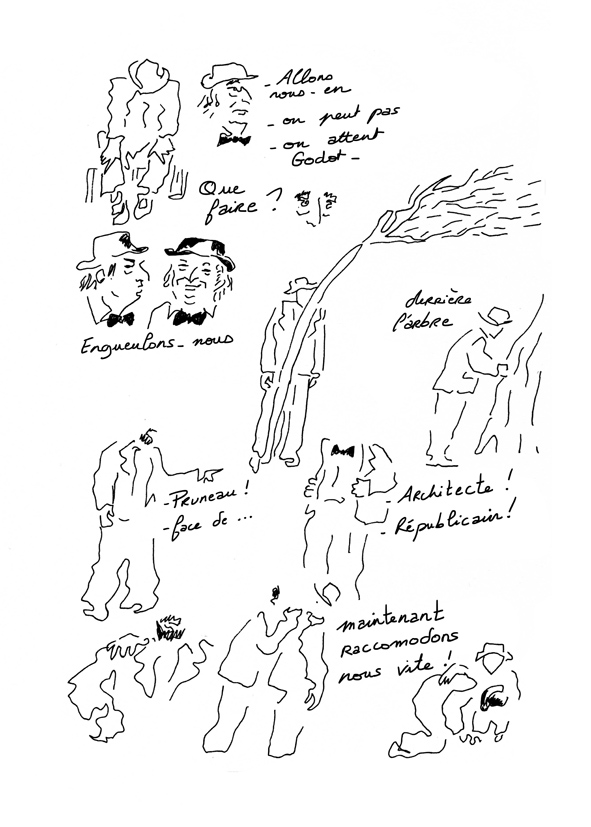 - Allons
nous - en
- on peut pas
- on attent
Godot -
Que
faire ?
Engueulons - nous
derrière
l'arbre
- Pruneau !
- face de ...
- Architecte !
- Républicain !
maintenant
Raccomodons
nous vite !